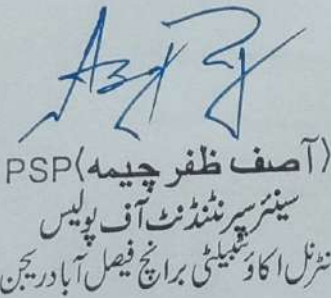 (آصف ظفر چیمہ)PSP
سینئر سپرنٹنڈنٹ آف پولیس
انٹرنل اکاؤنٹیبلٹی برانچ فیصل آباد ریجن